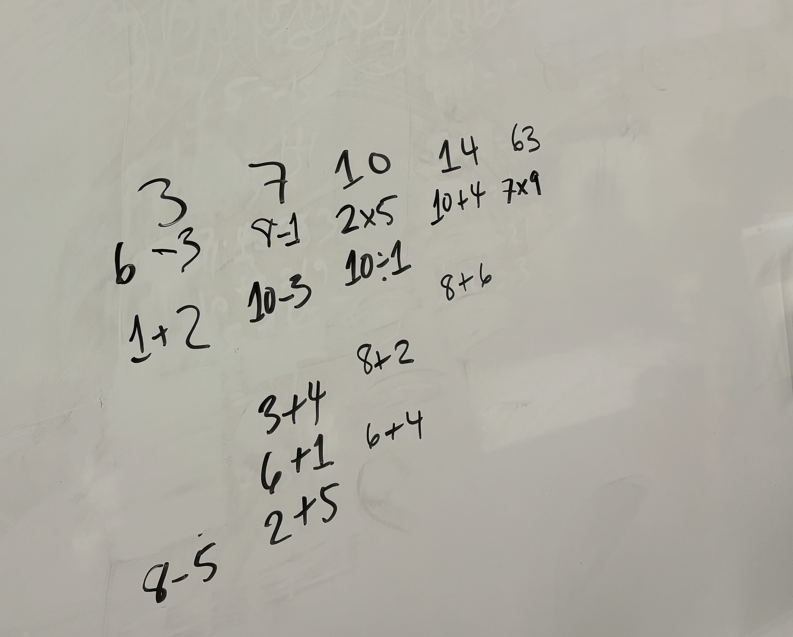 3 7 10 14 63
6-3 8-1 2x5 10+4 7x9
1+2 10-3 10÷1 8+6
8+2
3+4
6+1 6+4
2+5
8-5